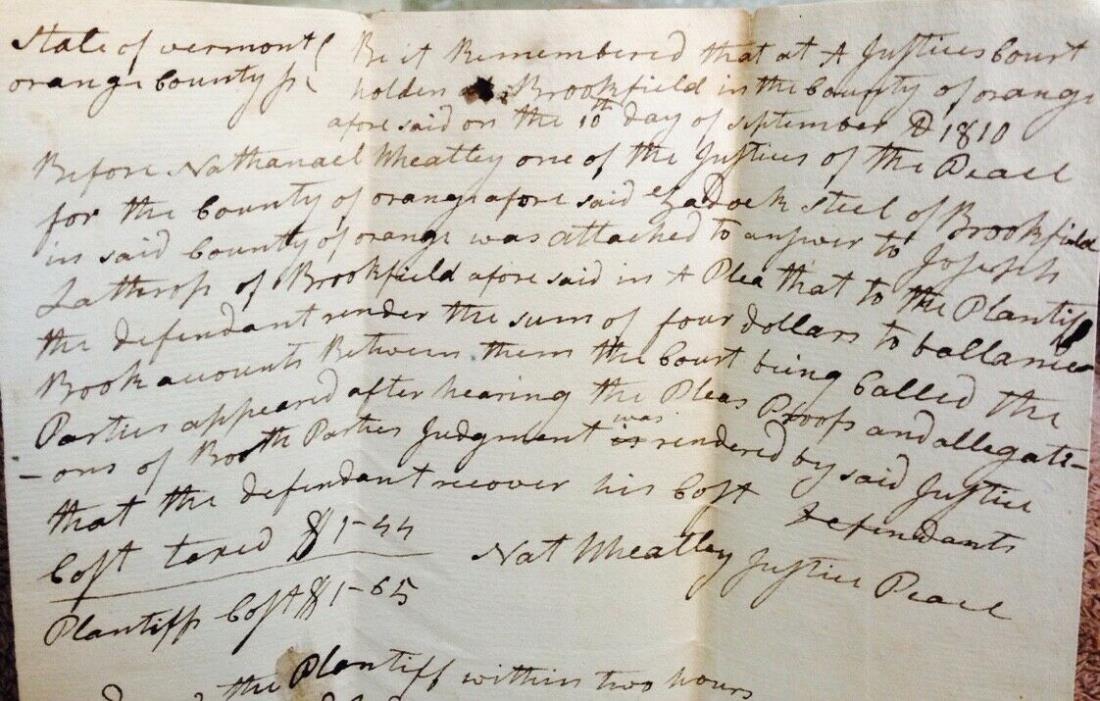 State of vermont
orange County ss
Be it Remembered that at A Justices Court
holden at Brookfield in the County of orange
afore said on the 10th day of september AD 1810
Before Nathanael Wheatley one of the Justices of the Peace
for the County of orange afore said Zadock steel of Brookfield
in said County of orange was attached to answer to Joseph
Lathrop of Brookfield afore said in A Plea that to the Plantiff
the defendant render the sum of four dollars to ballance
Book accounts Between them the Court being Called the
Parties appeared after hearing the Pleas Proofs and allegati-
-ons of Both Parties Judgment was rendered by said Justice
that the defendant recover his Cost
Cost taxed $1-44 Defendants
Nat Wheatley Justice Peace
Plantiffs Cost $1-65
the Plantiff within two hours